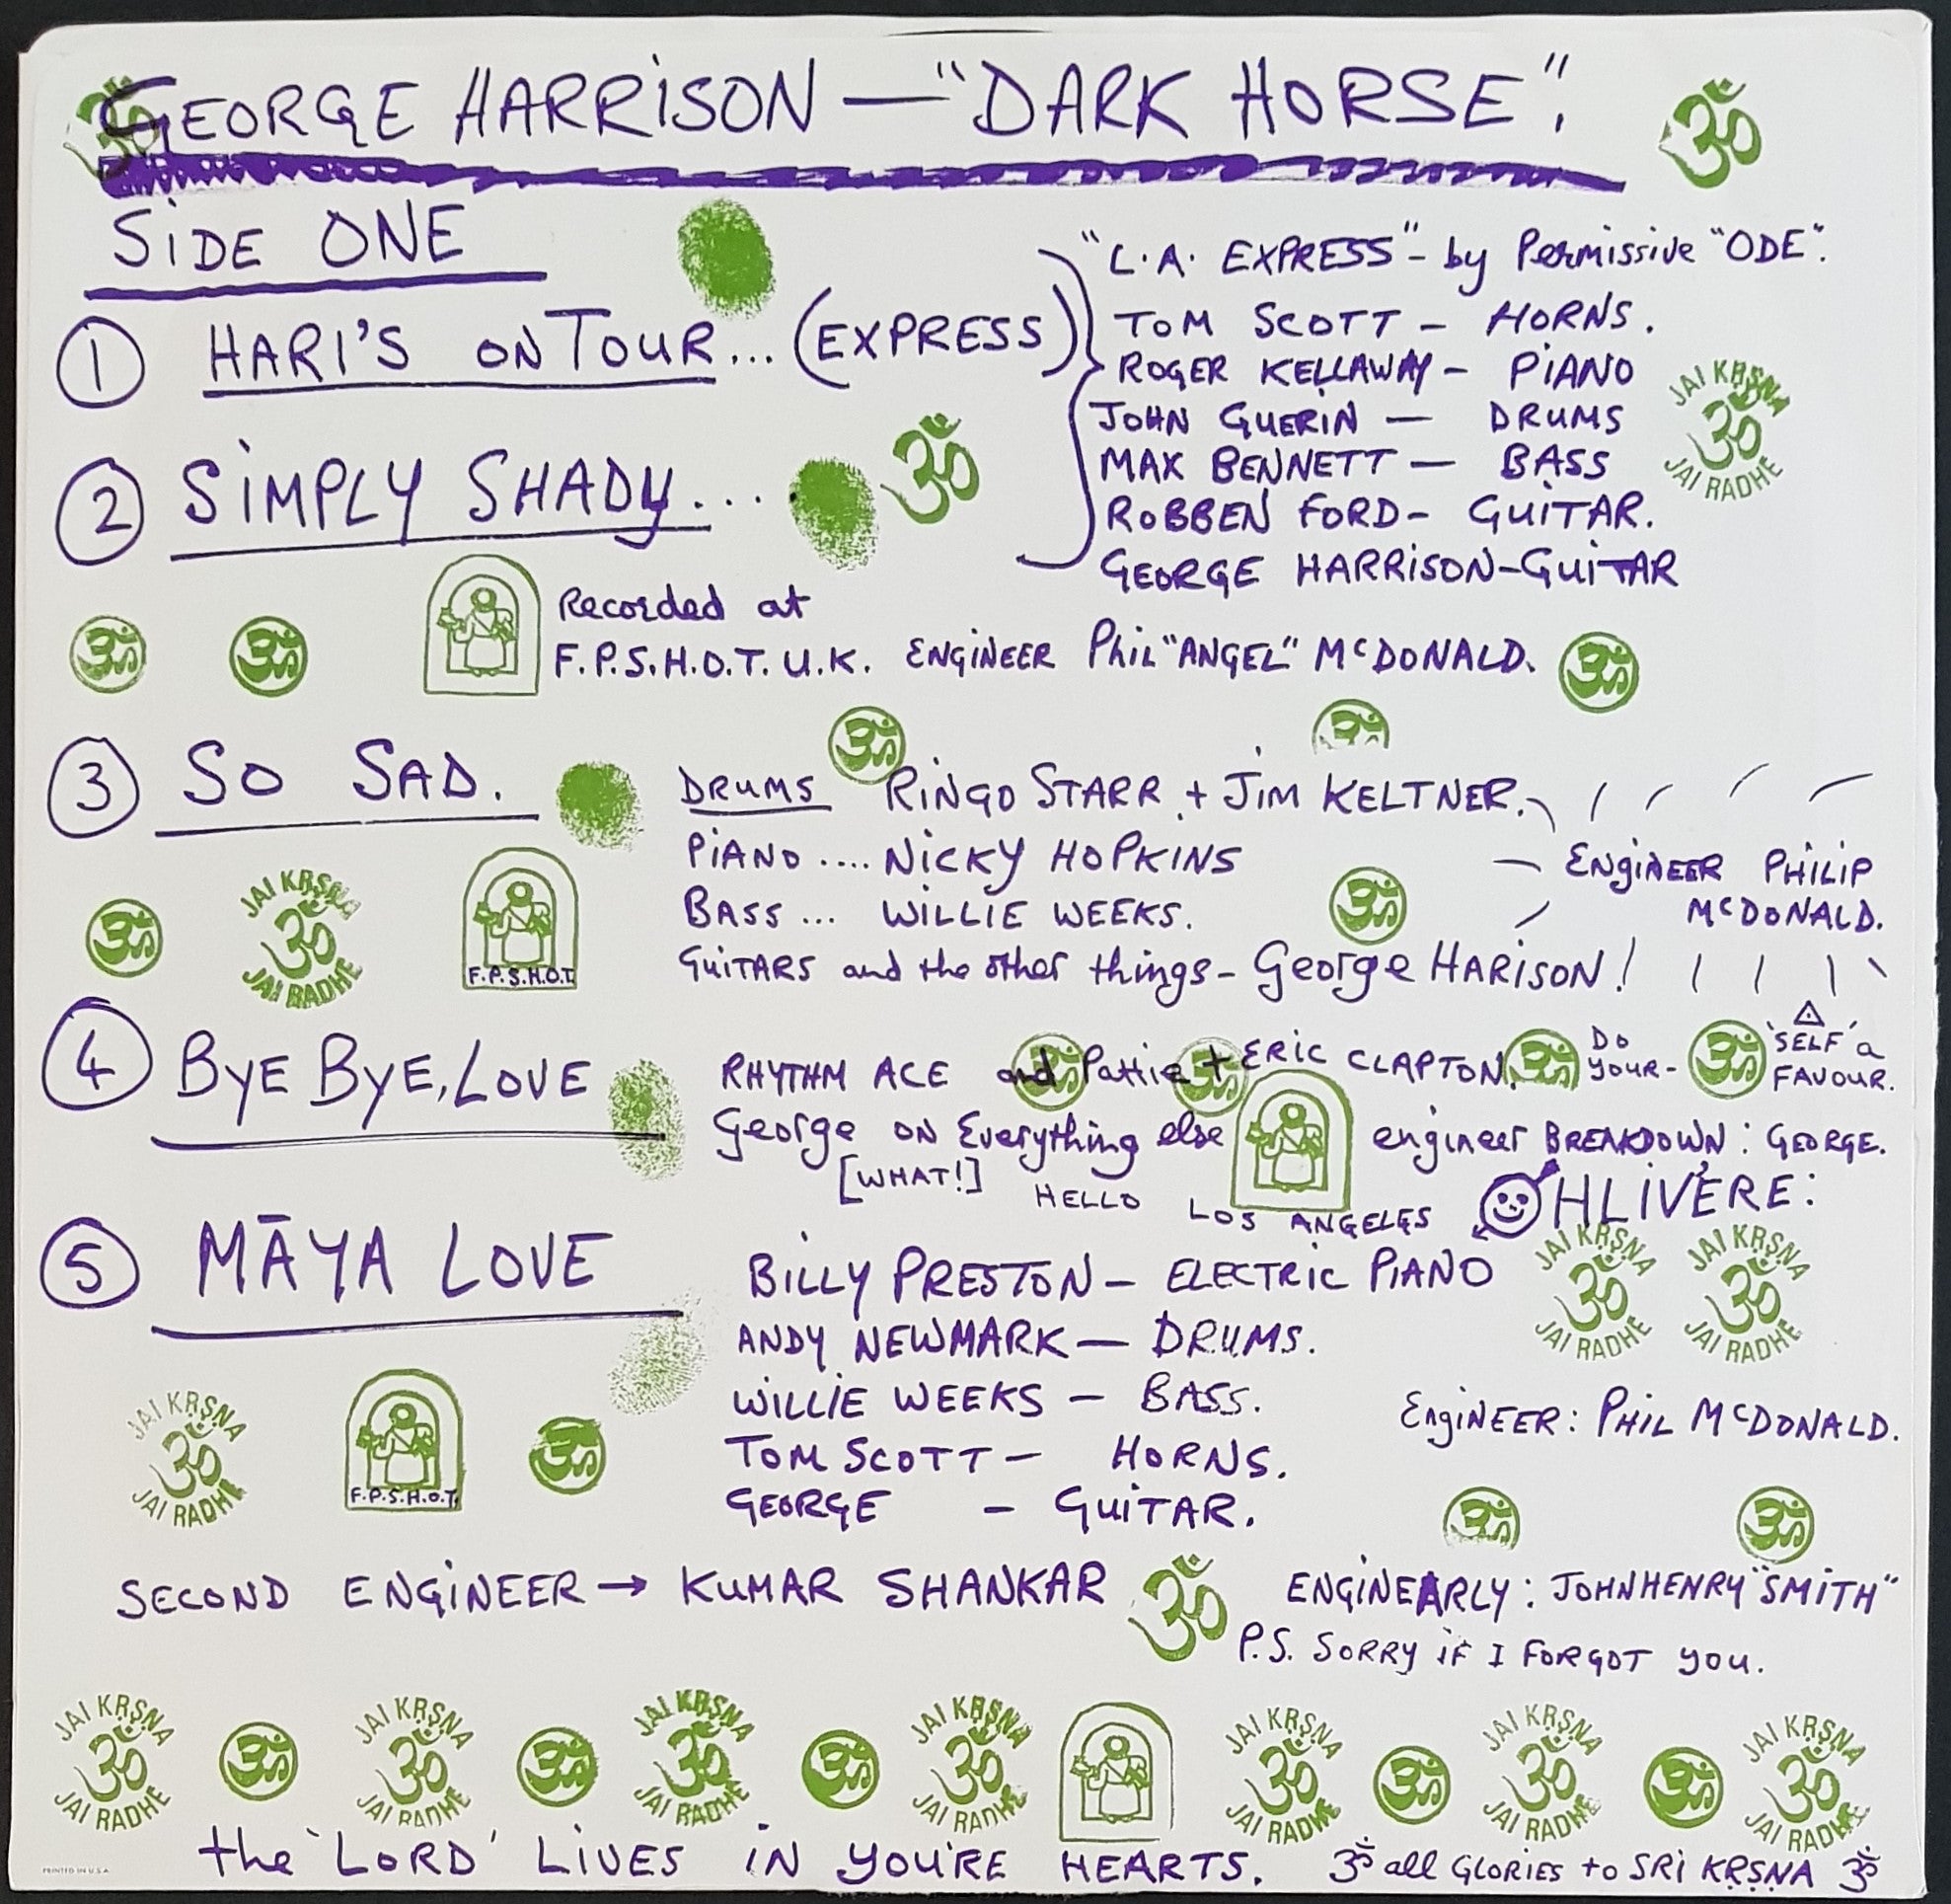 GEORGE HARRISON — "DARK HORSE".
SIDE ONE
① HARI'S ON TOUR... (EXPRESS)
"L.A. EXPRESS" - by Permissive "ODE".
TOM SCOTT - HORNS.
ROGER KELLAWAY - PIANO
JOHN GUERIN — DRUMS
MAX BENNETT — BASS
ROBBEN FORD - GUITAR.
GEORGE HARRISON - GUITAR
② SIMPLY SHADY...
Recorded at
F.P.S.H.O.T. U.K. ENGINEER Phil "ANGEL" McDONALD.
JAI KRṢNA
ॐ
JAI RADHE
③ SO SAD.
DRUMS RINGO STARR + JIM KELTNER.
PIANO .... NICKY HOPKINS
BASS ... WILLIE WEEKS.
GUITARS and the other things - George HARISON!
ENGINEER PHILIP
McDONALD.
JAI KRṢNA
ॐ
JAI RADHE
F.P.S.H.O.T.
④ BYE BYE, LOVE
RHYTHM ACE and Pattie + ERIC CLAPTON. DO YOUR- 'SELF' a FAVOUR.
George ON Everything else engineer BREAKDOWN: GEORGE.
[WHAT!] HELLO LOS ANGELES
OHLIVERE:
⑤ MĀYA LOVE
BILLY PRESTON - ELECTRIC PIANO
ANDY NEWMARK — DRUMS.
WILLIE WEEKS - BASS.
TOM SCOTT - HORNS.
GEORGE - GUITAR.
JAI KRṢNA ॐ JAI RADHE JAI KRṢNA ॐ JAI RADHE
ENGINEER: PHIL McDONALD.
JAI KRṢNA
ॐ
JAI RADHE
F.P.S.H.O.T.
SECOND ENGINEER → KUMAR SHANKAR ॐ ENGINEARLY: JOHN HENRY "SMITH"
P.S. SORRY if I FORGOT you.
JAI KRṢNA ॐ JAI RADHE ॐ JAI KRṢNA ॐ JAI RADHE ॐ JAI KRṢNA ॐ JAI RADHE ॐ JAI KRṢNA ॐ JAI RADHE JAI KRṢNA ॐ JAI RADHE ॐ JAI KRṢNA ॐ JAI RADHE ॐ JAI KRṢNA ॐ JAI RADHE
the 'LORD' LIVES IN YOU'RE HEARTS. ॐ all GLORIES to SRI KRṢNA ॐ
PRINTED IN U.S.A.